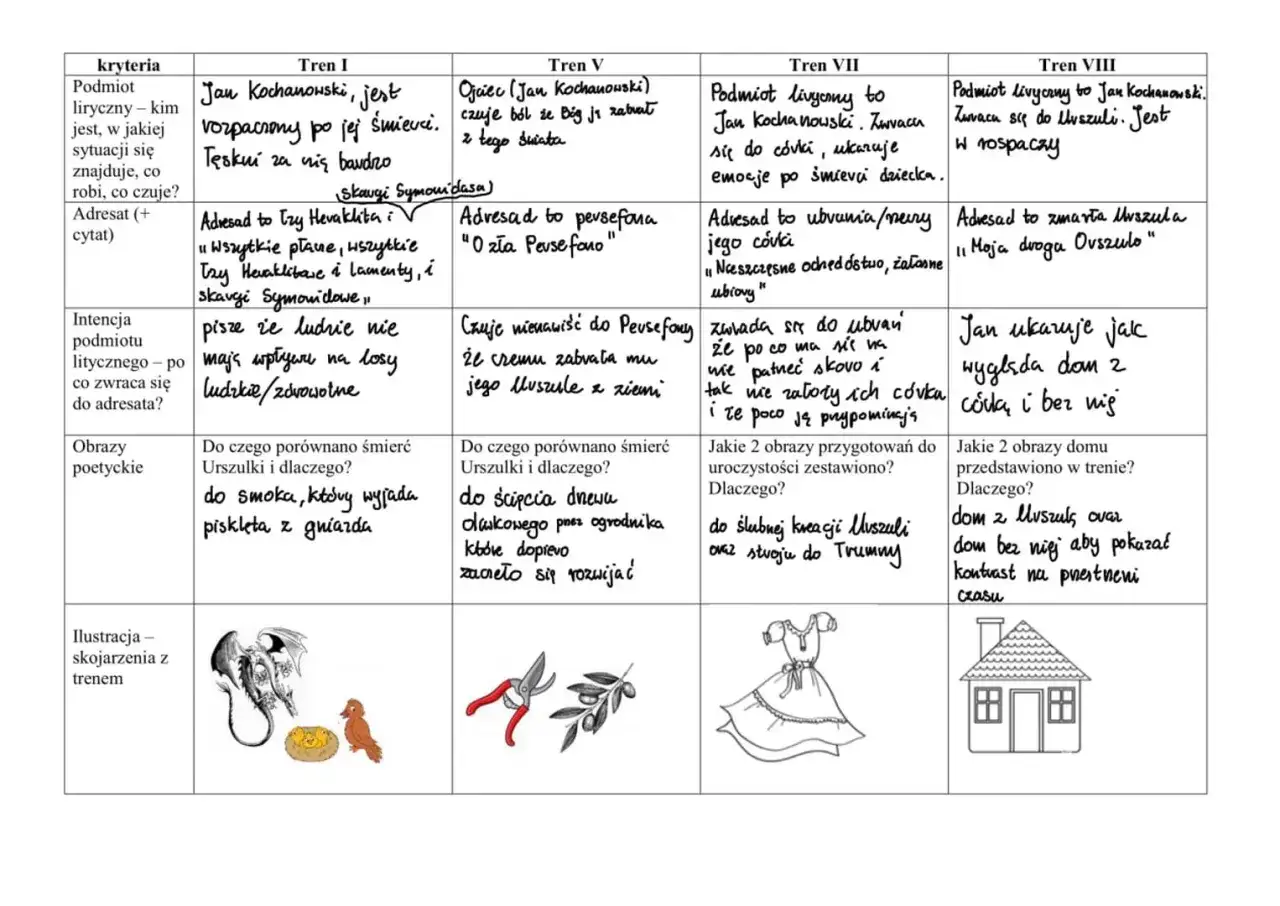 kryteria
Tren I
Tren V
Tren VII
Tren VIII
Podmiot
liryczny – kim
jest, w jakiej
sytuacji się
znajduje, co
robi, co czuje?
Jan Kochanowski, jest
rozpaczony po jej śmierci.
Tęskni za nią bardzo
Ojciec (Jan Kochanowski)
czuje ból że Bóg ją zabrał
z tego świata
Podmiot liryczny to
Jan Kochanowski. Zwraca
się do córki, ukazuje
emocje po śmierci dziecka.
Podmiot liryczny to Jan Kochanowski.
Zwraca się do Urszuli. Jest
w rospaczy
Adresat (+
cytat)
skargi Symonidasa)
Adresad to łzy Heraklita i
"Wszytkie płane, wszytkie
łzy Heraklitowe i lamenty, i
skargi Symonidowe"
Adresad to persefona
"O zła Persefono"
Adresad to ubrania/rzeczy
jego córki
"Nieszczęsne ochędóstwo, żałosne
ubiory"
Adresad to zmarła Urszula
"Moja droga Orszulo"
Intencja
podmiotu
litycznego – po
co zwraca się
do adresata?
pisze że ludzie nie
mają wpływu na losy
ludzkie/zdrowotne
Czuje nienawiść do Persefony
że czemu zabrała mu
jego Urszule z ziemi
zwrada się do ubrań
że po co ma się na
nie patrzeć skoro i
tak nie założy ich córka
i że poco ją przypominają
Jan ukazuje jak
wygląda dom z
córką i bez niej
Obrazy
poetyckie
Do czego porównano śmierć
Urszulki i dlaczego?
do smoka, który wyjada
pisklęta z gniazda
Do czego porównano śmierć
Urszulki i dlaczego?
do ścięcia drzewa
oliwkowego przez ogrodnika
które dopiero
zaczeło się rozwijać
Jakie 2 obrazy przygotowań do
uroczystości zestawiono?
Dlaczego?
do ślubnej kreacji Urszuli
oraz stroju do Trumny
Jakie 2 obrazy domu
przedstawiono w trenie?
Dlaczego?
dom z Urszulą oraz
dom bez niej aby pokazać
kontrast na przestrzeni
czasu
Ilustracja –
skojarzenia z
trenem